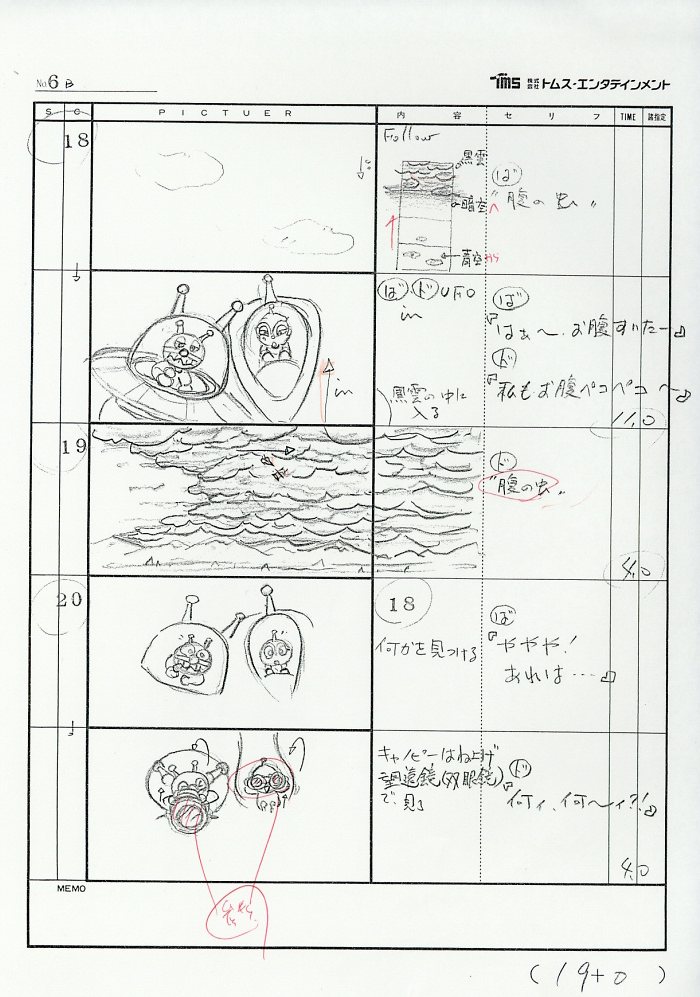 No. 6 B
TMS 株式会社 トムス・エンタテインメント
S C PICTUER 内容 セリフ TIME 諸指定
18
Follow
黒雲
暗空
青空から
ば
"腹の虫"
ば ド UFO
in
in
黒雲の中に
入る
ば
『はぁ〜、お腹すいたー』
ド
『私もお腹ペコペコ〜』
11,0
19
ド
"腹の虫"
4,0
20
18
何かを見つける
ば
『ややや!
あれは・・・』
キャノピーはね上げ
望遠鏡(双眼鏡)
で、見る
ド
『何ィ、何〜ィ?!』
4,0
MEMO
(19+0)